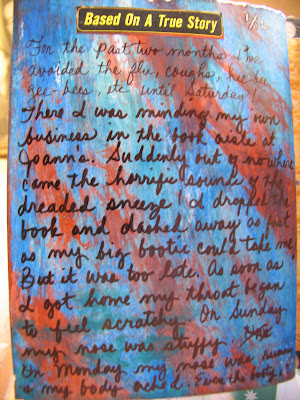 Based On A True Story
For the past two months I've
avoided the flu, coughs, hee bee
gee-bees, etc until Saturday!
There I was minding my own
business in the book aisle at
Joanns. Suddenly out of nowhere
came the horrific sound of the
dreaded sneeze! I dropped the
book and dashed away as fast
as my big bootie could take me
But it was too late. As soon as
I got home my throat began
to feel scratchy. On Sunday
my nose was stuffy.
On Monday my nose was running
& my body ached. Even the booty